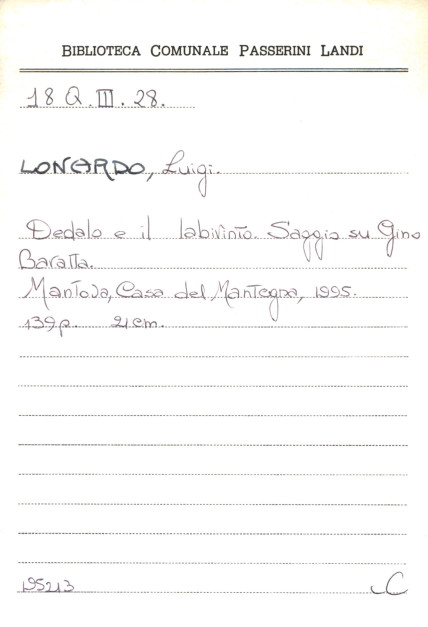 BIBLIOTECA COMUNALE PASSERINI LANDI
18 Q. III. 28.
LONARDO, Luigi.
Dedalo e il labirinto. Saggio su Gino
Baratta.
Mantova, Casa del Mantegna, 1995.
139 p. 21 cm.
195213
C